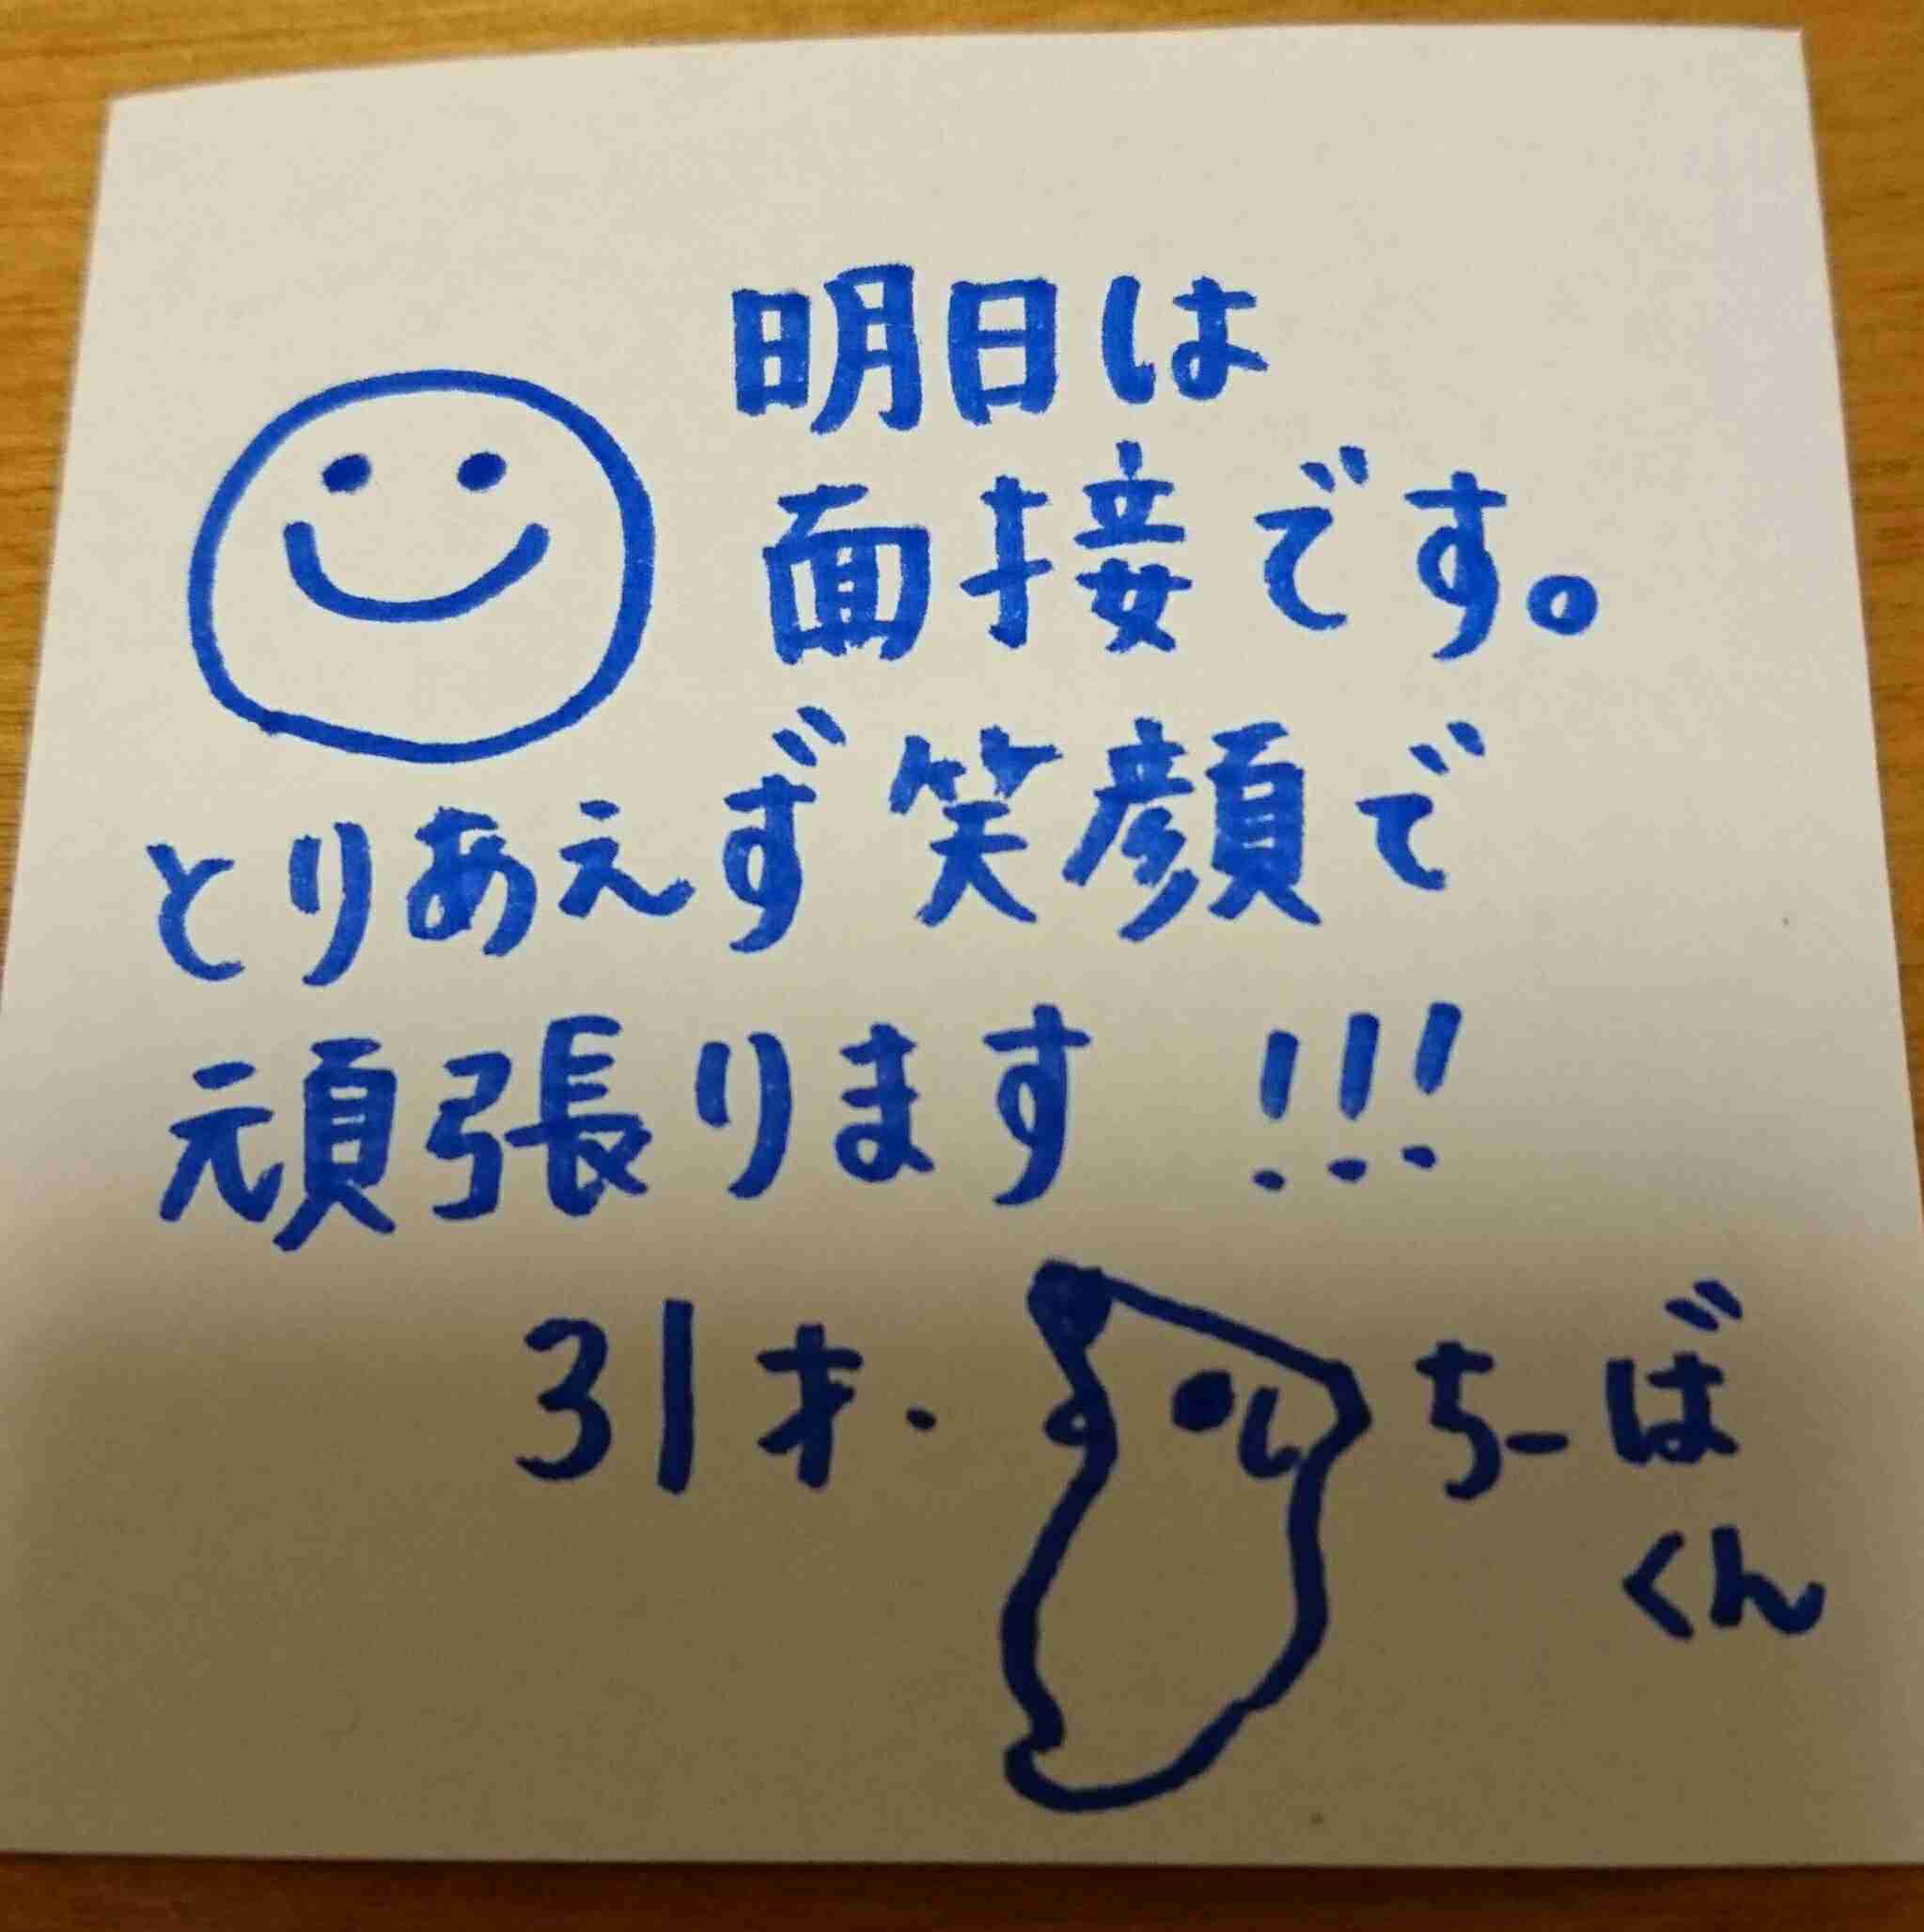 明日は
面接です。
とりあえず笑顔で
頑張ります!!!
31才・ちーば
くん